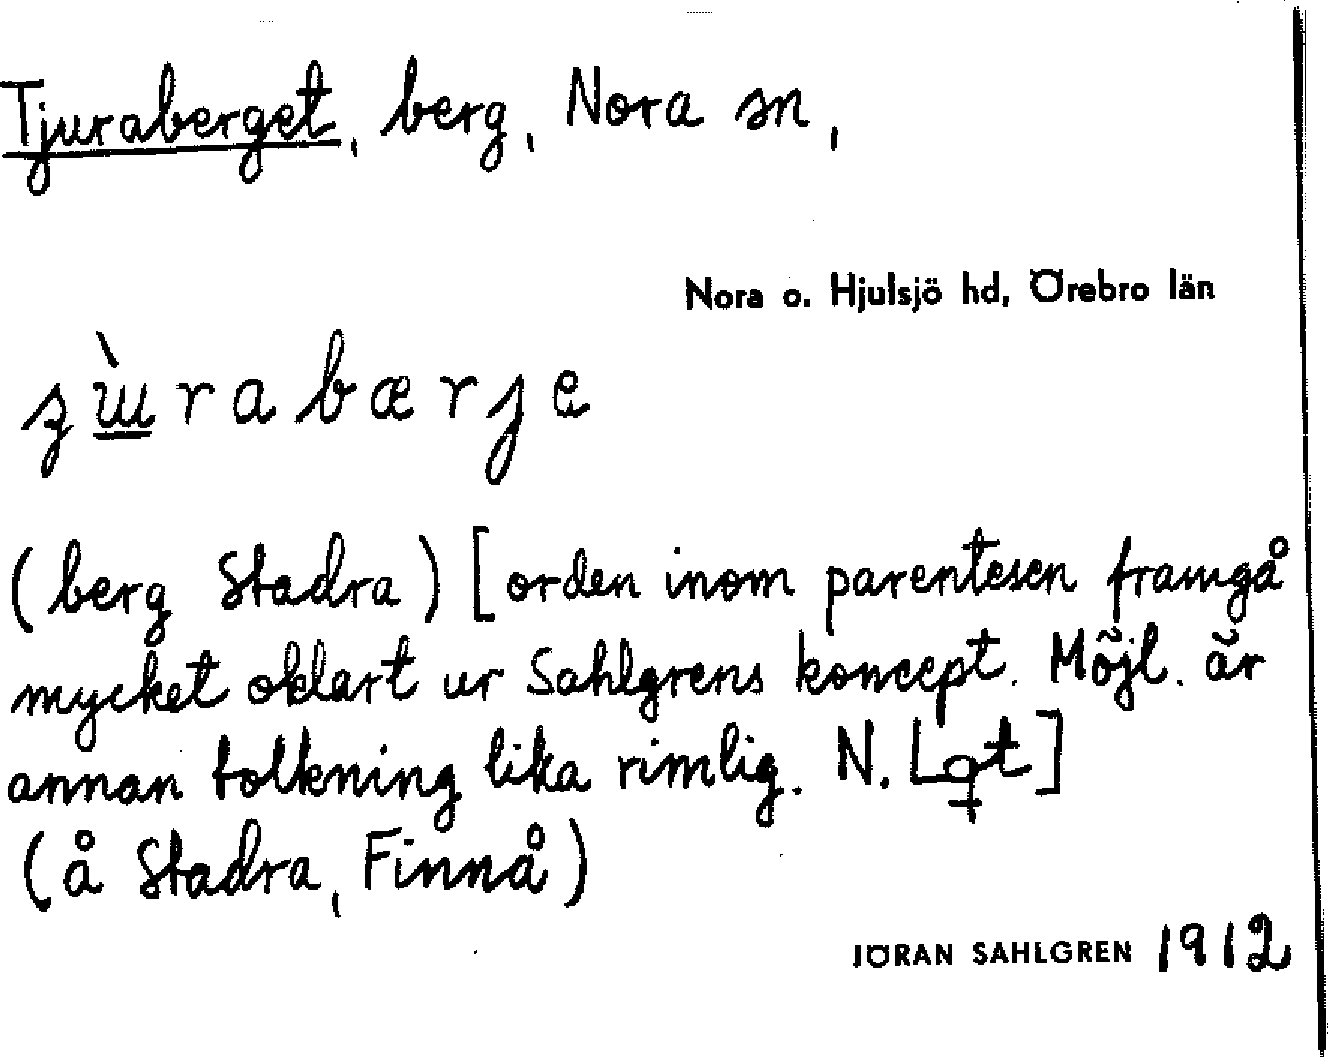 Tjuraberget, berg, Nora sn,
Nora o. Hjulsjö hd, Örebro län
(berg Stadra) [orden inom parentesen framgå
mycket oklart ur Sahlgrens koncept. Möjl. är
annan tolkning lika rimlig. N.
(å Stadra, Finnå)
JÖRAN SAHLGREN 1912